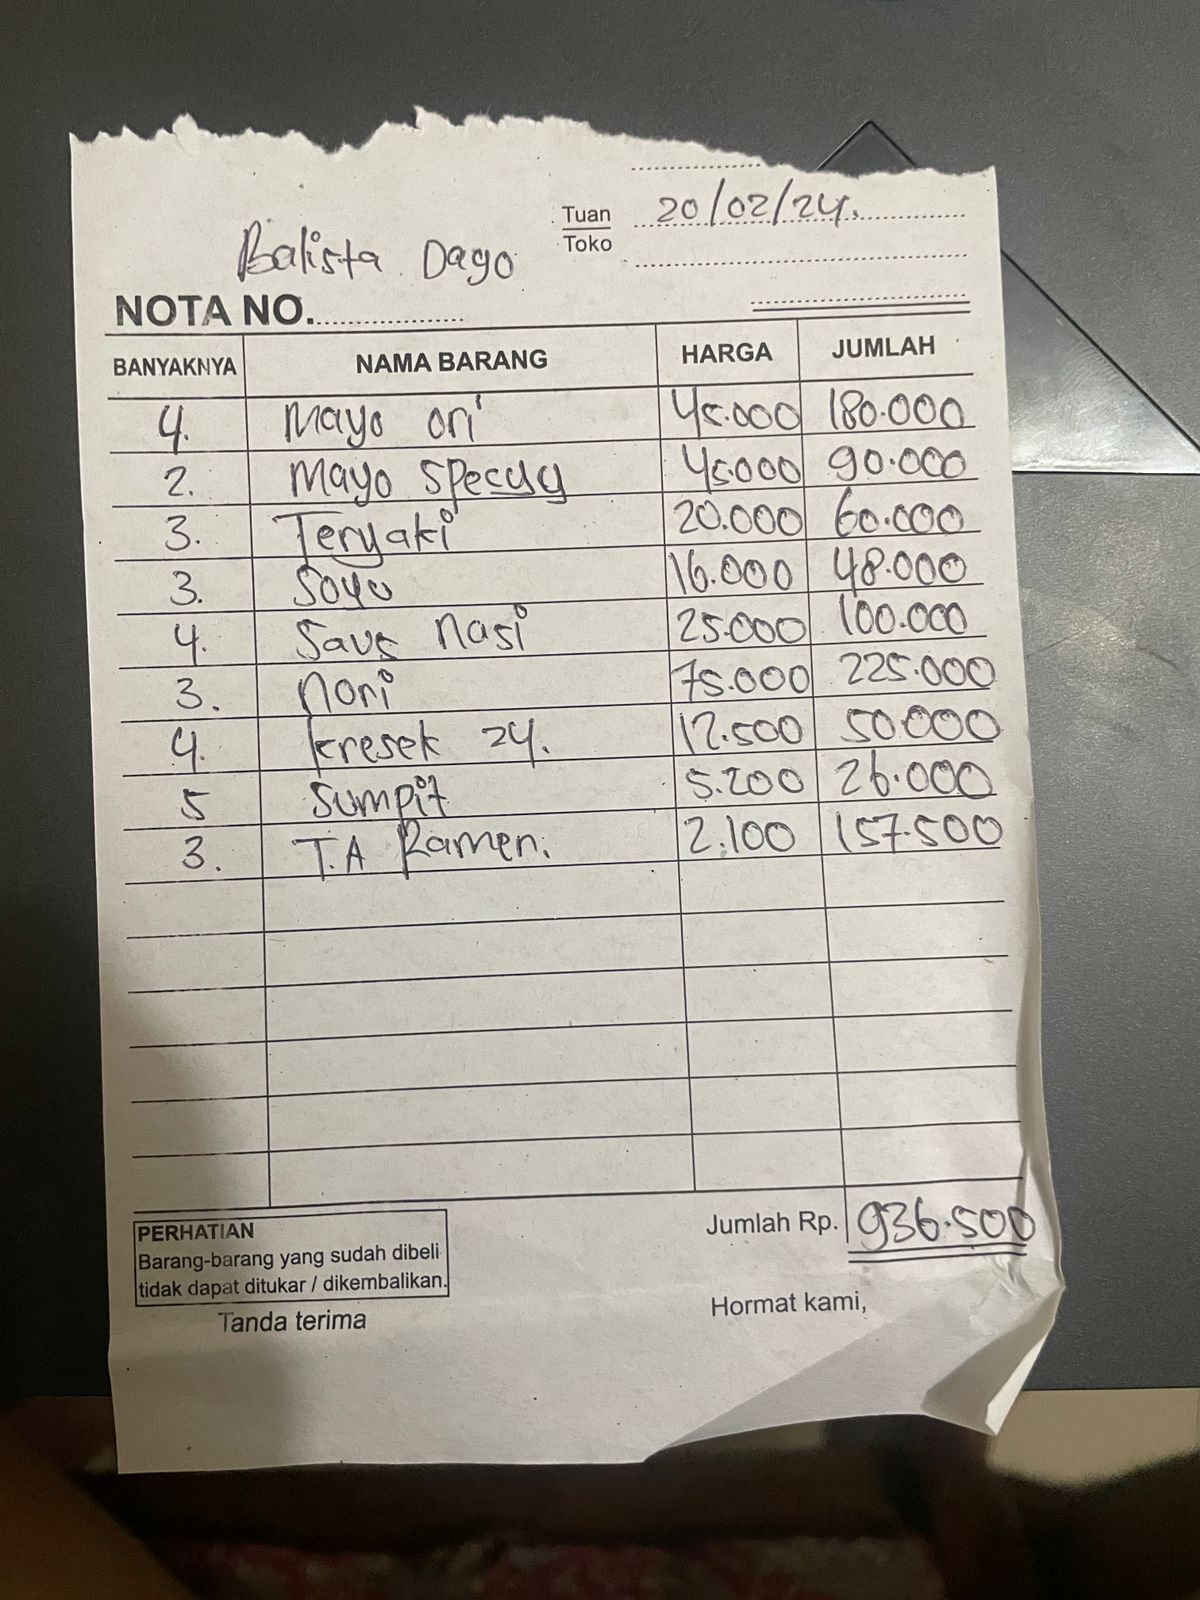 Tuan 20/02/24.
Toko
Balista Dago
NOTA NO.
BANYAKNYA NAMA BARANG HARGA JUMLAH
4. Mayo ori 45.000 180.000
2. Mayo specyy 45.000 90.000
3. Teryaki 20.000 60.000
3. Soyu 16.000 48.000
4. Saus nasi 25.000 100.000
3. Nori 75.000 225.000
4. kresek 24. 12.500 50.000
5 Sumpit 5.200 26.000
3. T.A Ramen. 2.100 157.500
Jumlah Rp. 936.500
PERHATIAN
Barang-barang yang sudah dibeli
tidak dapat ditukar / dikembalikan.
Tanda terima
Hormat kami,